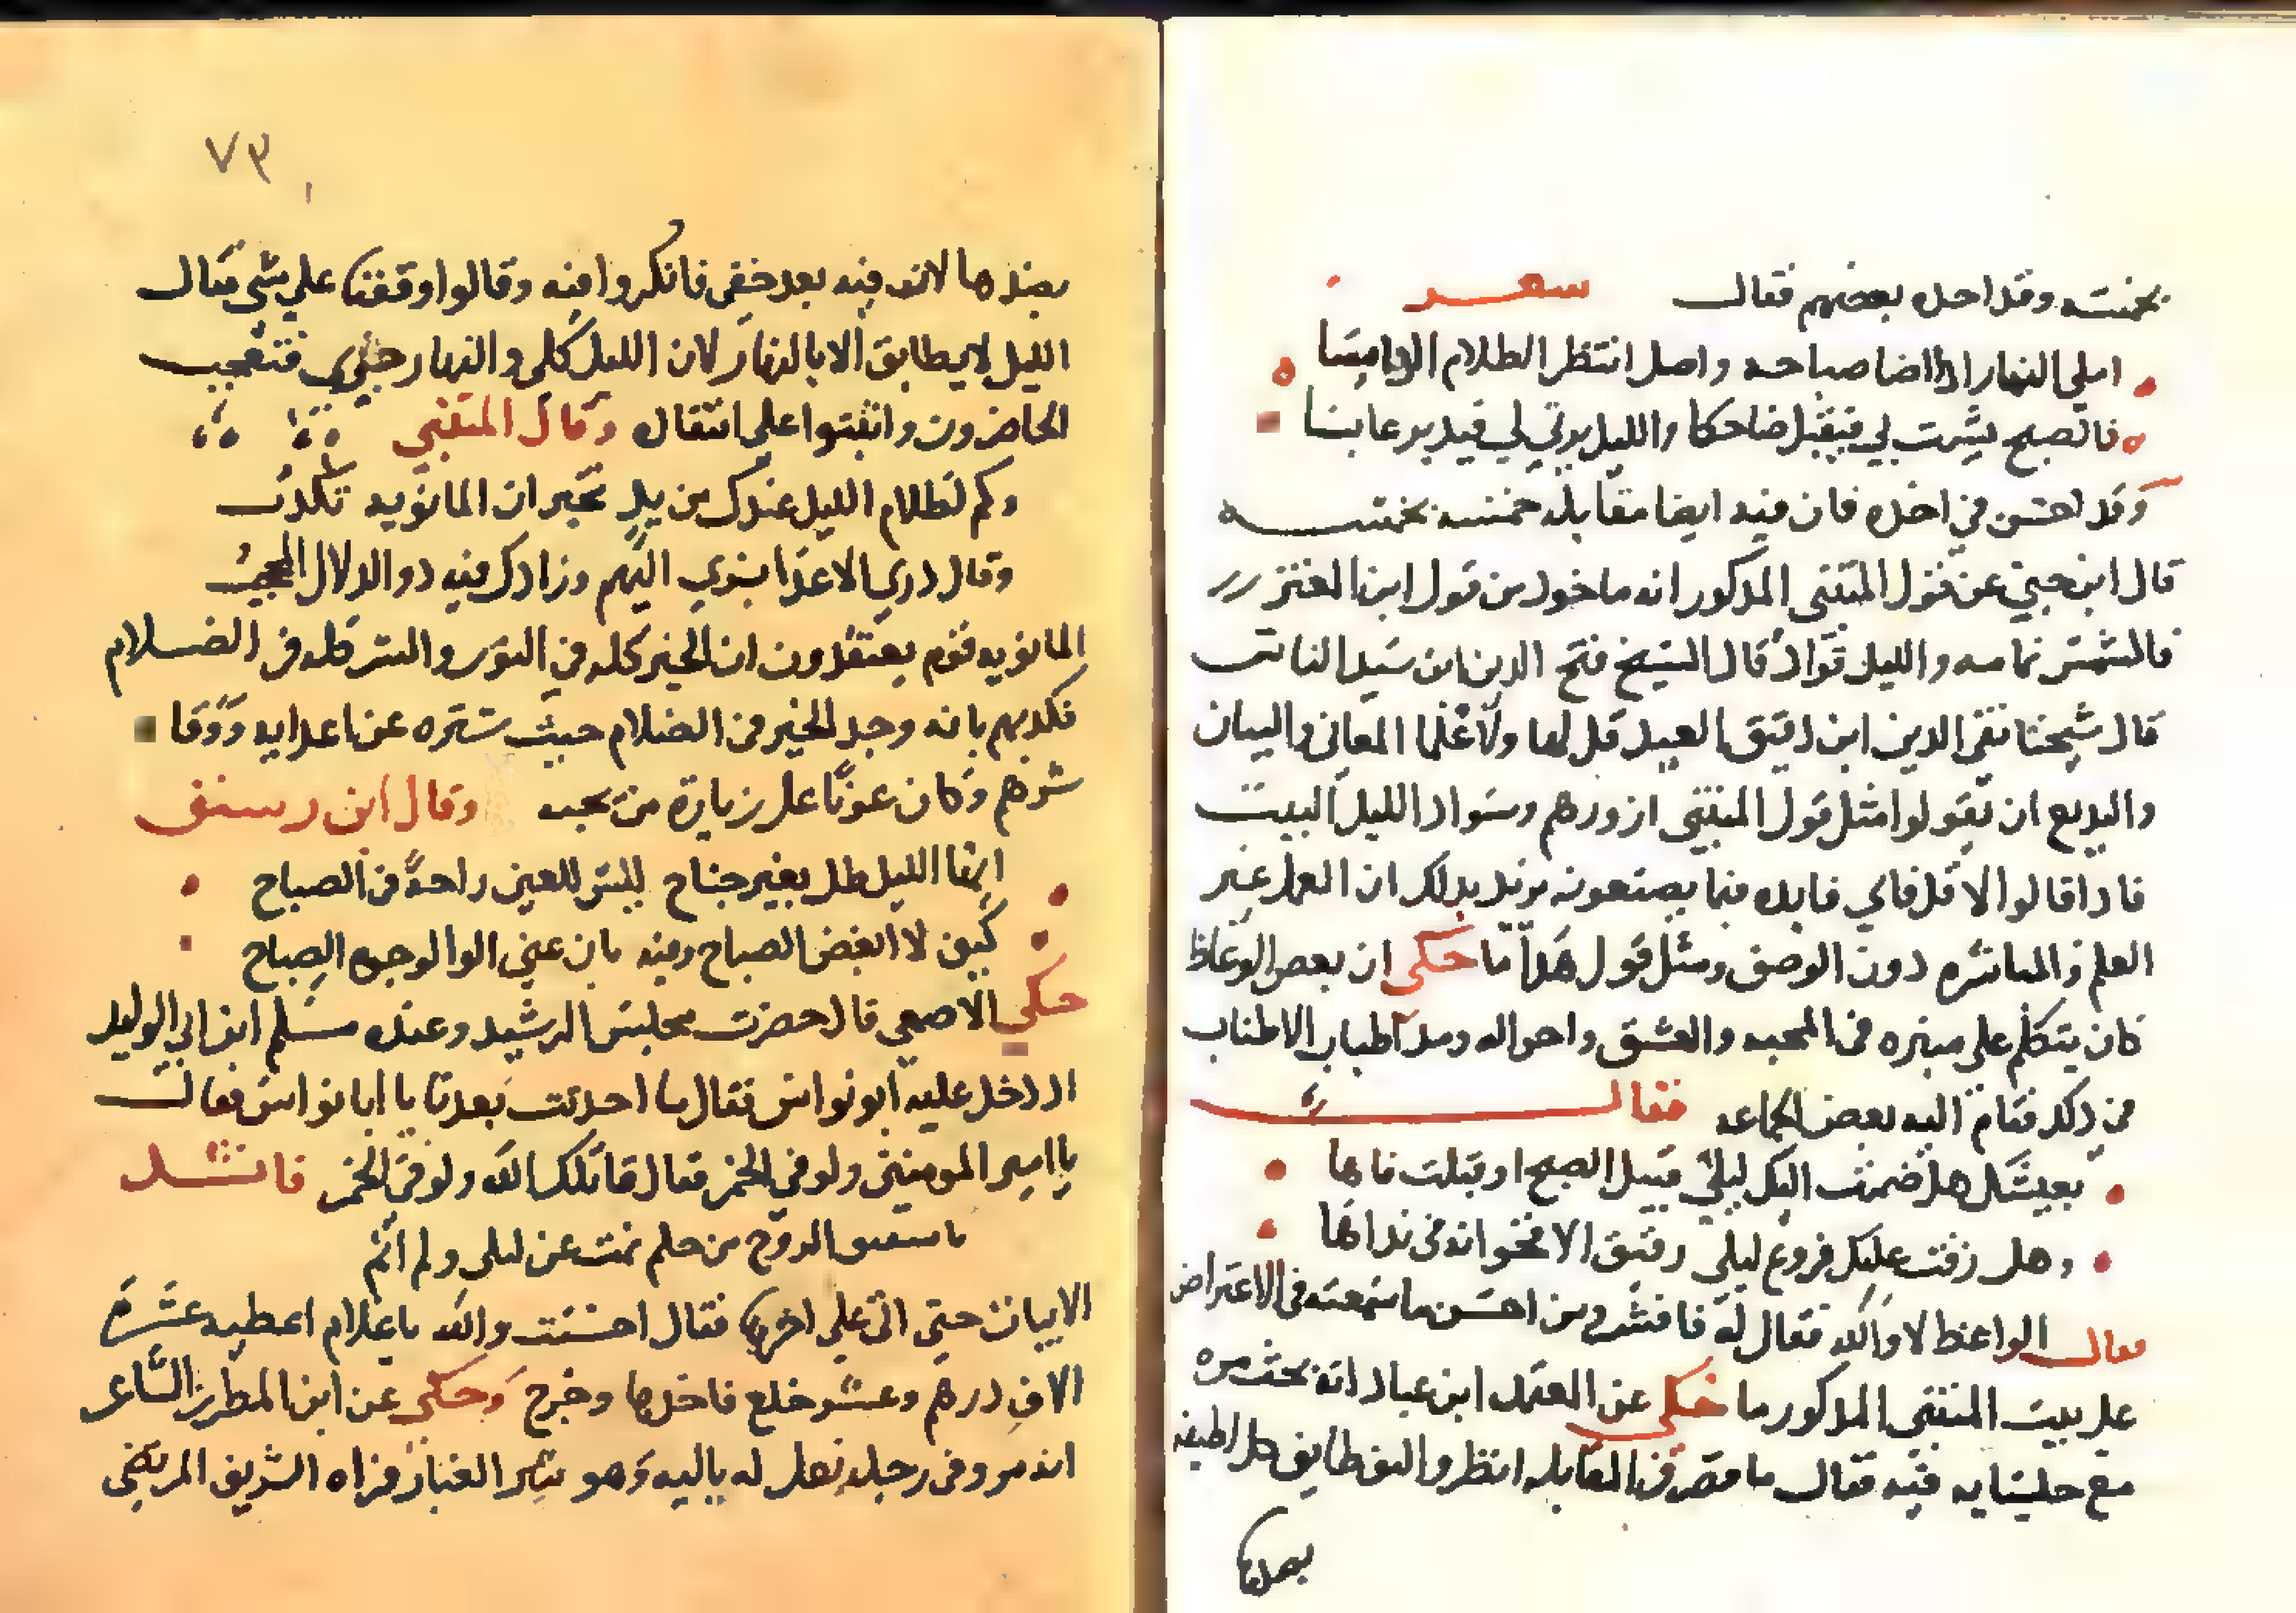 بخمسه وقد اخده بعضهم فقال سعر
املي النهار اذا اضا صباحه واصل انتظر الظلام الدامسا
فالصبح يشمت لي فيقبل ضاحكا والليل يرثي لي فيدبر عابسا
وقد احسن في اخده فان فيه ايضا مقابله خمسه بخمسه
قال ابن جني عن قول المتنبي المدكور انه ماخود من قول ابن المعتز
فالشمس نمامه والليل قواد قال الشيخ فتح الدين ابن سيد الناس
قال شيخنا تقي الدين ابن دقيق العيد قل لها ولاء علما المعاني والبيان
والبديع ان يقولوا مثل قول المتنبي ازورهم وسواد الليل البيت
فادا قالوا لا قل فاي فايده فيما يصنعونه يريد بدلك ان العمل غير
العلم والمباشره دون الوصف ومثل قول هدا ما حكي ان بعض الوعاظ
كان يتكلم على منبره في المحبه والعشق واحواله ومد اطناب الاطناب
في دلك فقام اليه بعض الجماعه فقال
بعيشك هل ضممت اليك ليلى قبيل الصبح او قبلت فاها
وهل رفت عليك فروع ليلى رفيف الاقحوانه في نداها
فقال الواعظ لا والله فقال له فافشر ومن احسن ما سمعته في الاعتراض
على بيت المتنبي المدكور ما حكي عن المعتمد ابن عباد انه بحث مره
مع جلسايه فيه فقال ما قصر في المقابله انظروا اليف طابق كل لطيفه
بضدها
٧٣
بضدها لانه فيه بعد خفي فانكروا فيه وقالوا اوقفنا على شي فقال
الليل لا يطابق الا بالنهار لان الليل كلي والنهار جزي فتعجب
الحاضرون واثبتوا على انتقال وقال المتنبي
وكم لظلام الليل عندك من يد تخبر ان المانويه تكدب
وقال ردي الاعدا بسري اليهم وزارك فيه دو الدلال المحجب
المانويه قوم يعتقدون ان الخير كله في النور والشر كله في الضلام
فكدبهم بانه وجد الخير في الضلام حيث ستره عن اعدايه ووقا
شرهم وكان عونًا على زيارة من يحبه وقال ابن رسيق
ايها الليل طل بغير جناح ليس للعين راحة في الصباح
كيف لا ابغض الصباح وفيه بان عني الوا الوجوه الصباح
حكي الاصمعي قال حضرت مجلس الرشيد وعنده مسلم ابن ابي الوليد
اد دخل عليه ابو نواس فقال ما احدثت بعدنا يا ابا نواس فقال
يا امير المومنين ولو في الخمر فقال قاتلك الله ولو في الخمر فانشد
يا شقيق الروح من حكم نمت عن ليلى ولم انم
الابيات حتى اتى على اخرها فقال احسنت والله يا غلام اعطيه عشرة
الاف درهم وعشر خلع فاخدها وخرج وحكي عن ابن المطرز الشاعر
انه مر وفي رجله نعل له باليه وهو يثير الغبار فراه الشريف المرتضى